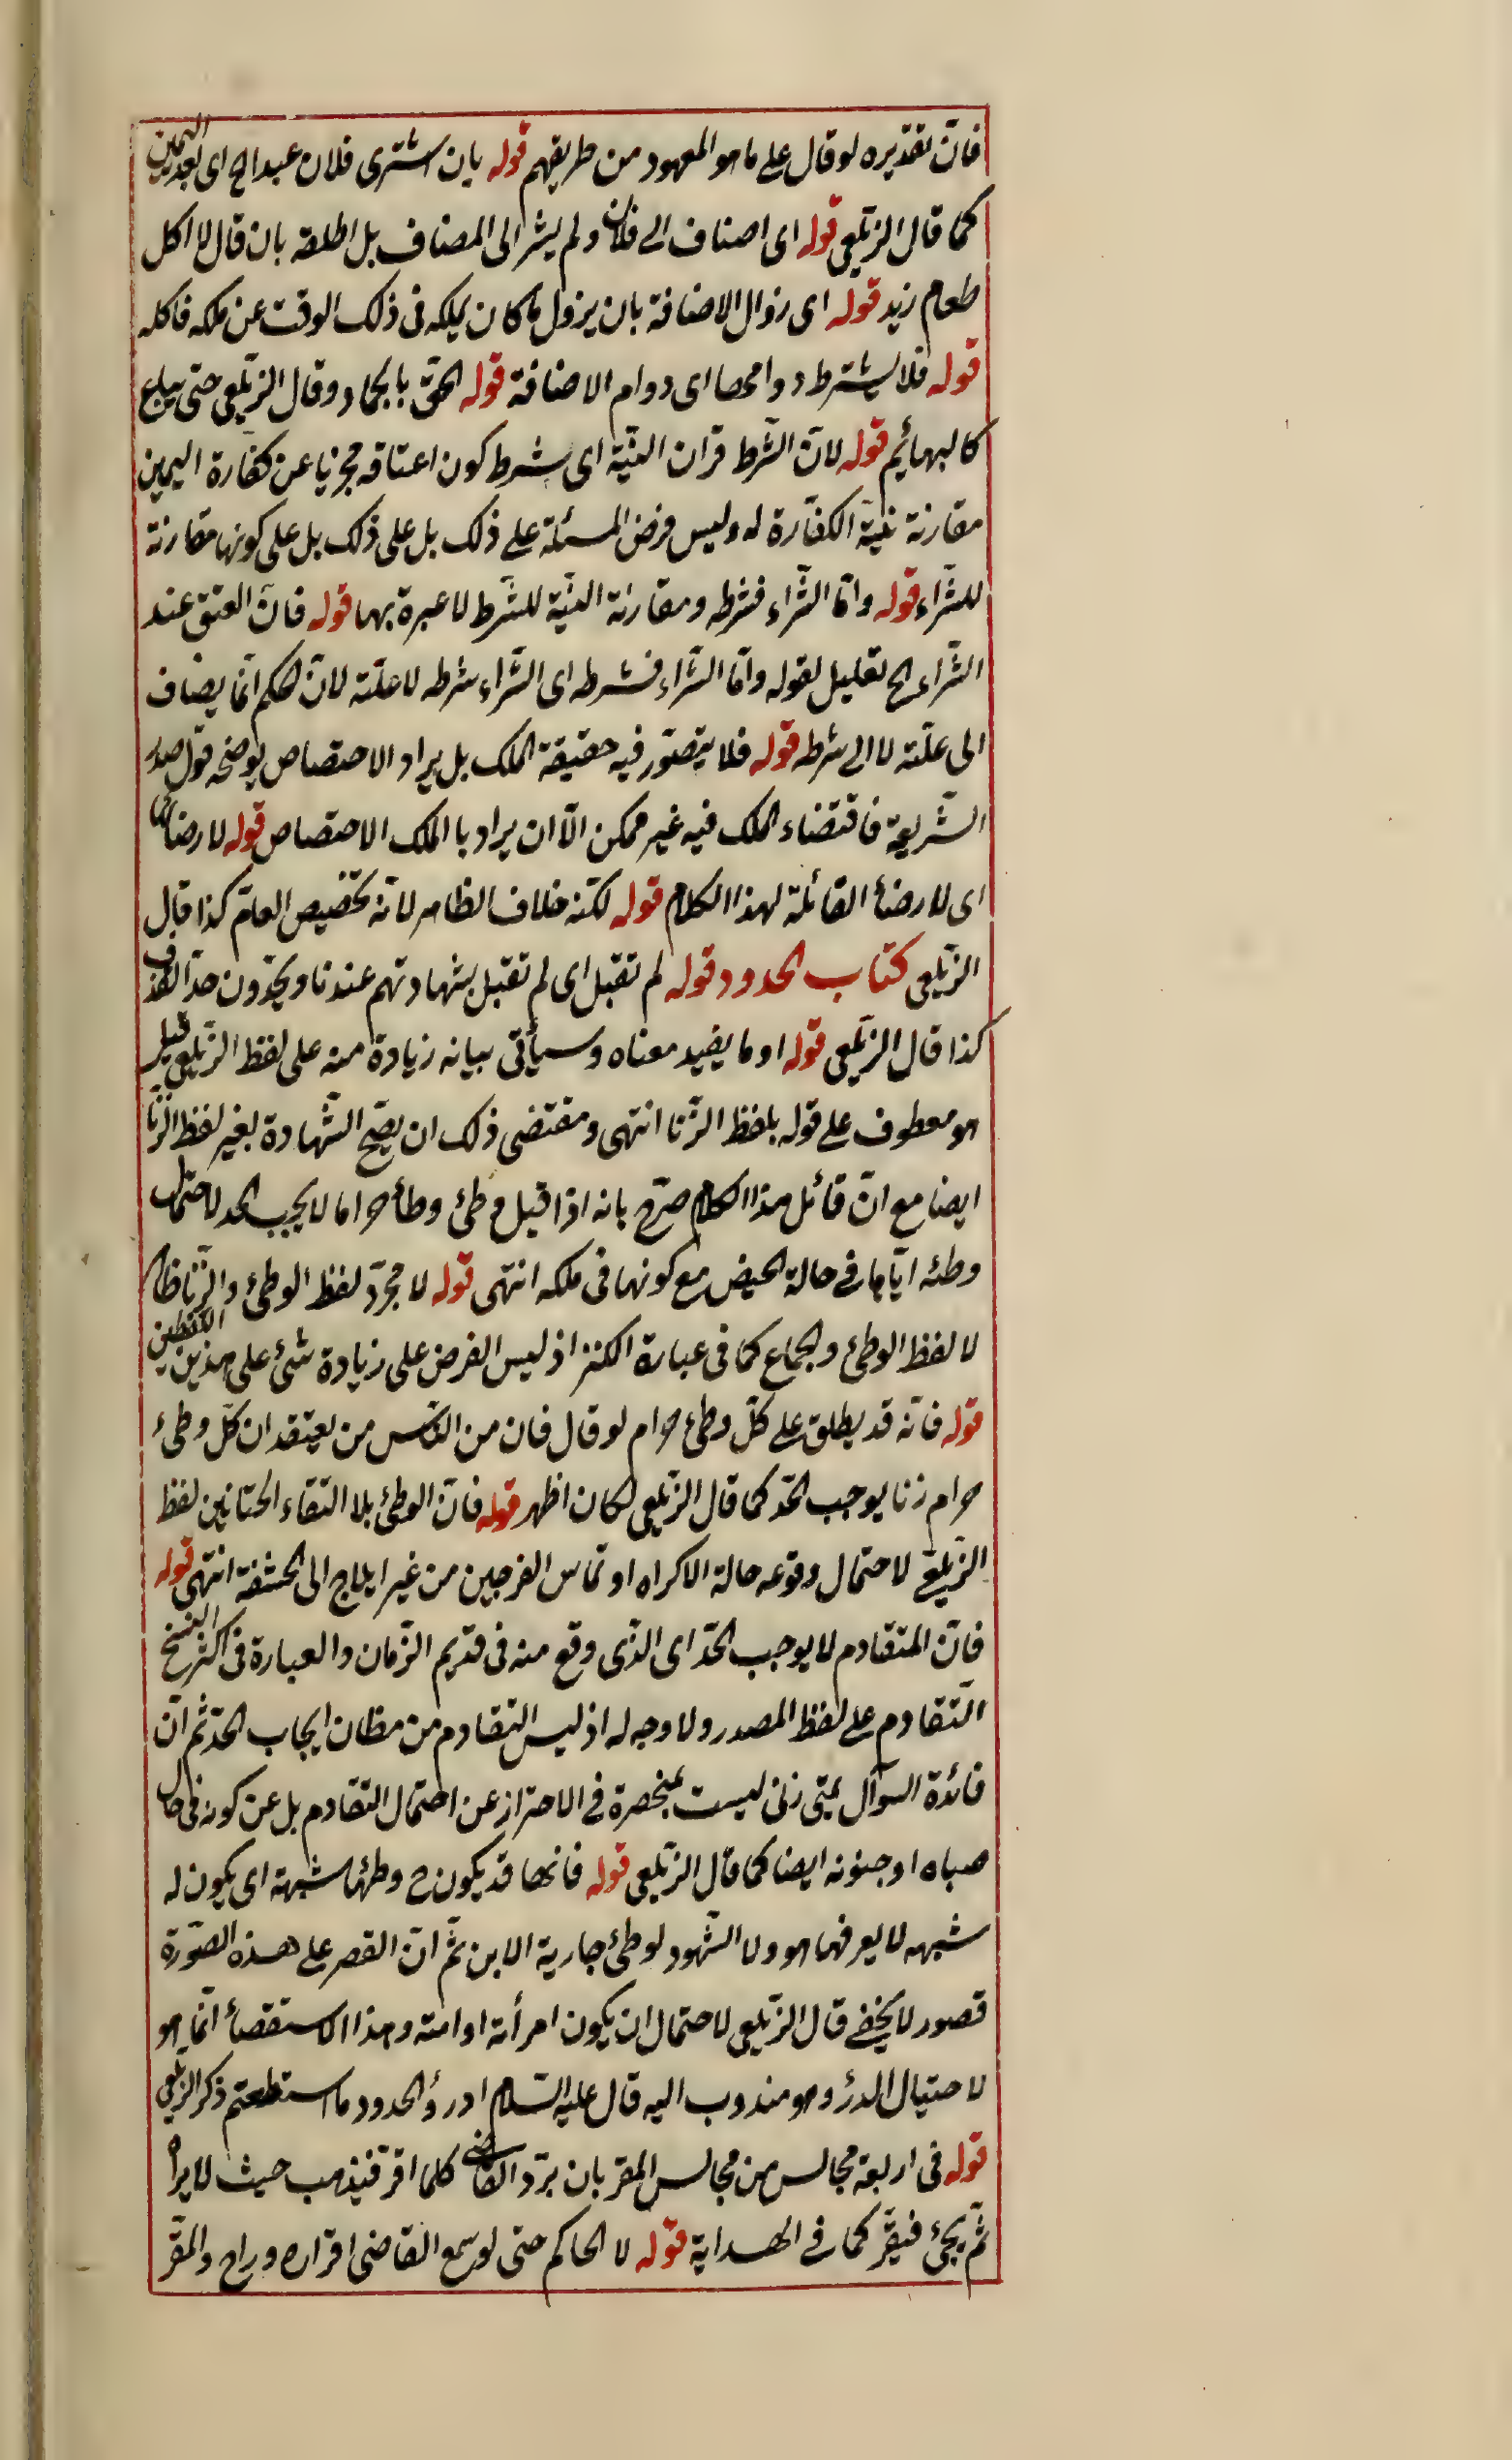 فانّ تقديره لو قال على ما هو المعهود من طريقهم قوله بان اشترى فلان عبدا الخ اى بعد اليمين
كما قال الزيلعى قوله اى اضاف الى فلان ولم يشر الى المضاف بل اطلقه بان قال لا اكل
طعام زيد قوله اى زوال الاضافة بان يزول ما كان يملكه فى ذلك الوقت عن ملكه فاكله
قوله فلا يشترط دوامها اى دوام الاضافة قوله الحق بالجماد وقال الزيلعى حتى يباع
كالبهائم قوله لانّ الشّرط قران النيّة اى شرط كون اعتاقه مجزيا عن كفّارة اليمين
مقارنة نيّة الكفّارة له وليس فرض المسئلة على ذلك بل على ذلك بل على كونها مقارنة
للشّراء قوله وامّا الشّراء فشرطه ومقارنة النيّة للشّرط لا عبرة بها قوله فانّ العتق عند
الشّراء الخ تعليل لقوله وامّا الشّراء فشرطه اى الشّراء شرطه لا علّته لانّ الحكم انّما يضاف
الى علّته لا الى شرطه قوله فلا يتصوّر فيه حقيقة الملك بل يراد الاختصاص يوضحه قول صدر
الشّريعة فاقتضاء الملك فيه غير ممكن الّا ان يراد بالملك الاختصاص قوله لارضائها
اى لارضاء القائلة لهذا الكلام قوله لكنّه خلاف الظاهر لانّه تخصيص العامّ كذا قال
الزيلعى كتاب الحدود قوله لم تقبل اى لم تقبل شهادتهم عندنا ويحدّون حدّ القذف
كذا قال الزيلعى قوله او ما يفيد معناه وسيأتى بيانه زيادة منه على لفظ الزيلعى قيل
هو معطوف على قوله بلفظ الزّنا انتهى ومقتضى ذلك ان يصحّ الشّهادة بغير لفظ الزّنا
ايضا مع انّ قائل هذا الكلام صرّح بانه اذا قيل وطئ وطأ حراما لا يجب الحد لاحتمال
وطئه ايّاها فى حالة الحيض مع كونها فى ملكه انتهى قوله لا مجرّد لفظ الوطئ والزّنا ظا
لا لفظ الوطئ والجماع كما فى عبارة الكنز اذ ليس الفرض على زيادة شئ على هذين اللفظين
قوله فانّه قد يطلق على كلّ وطئ حرام لو قال فان من النّاس من يعتقد ان كلّ وطئ
حرام زنا يوجب الحدّ كما قال الزيلعى لكان اظهر قوله فانّ الوطئ بلا التقاء الختانين لفظ
الزيلعى لاحتمال وقوعه حالة الاكراه او تماس الفرجين من غير ايلاج الى الحشفة انتهى قوله
فانّ المتقادم لا يوجب الحدّ اى الذّى وقع منه فى قديم الزّمان والعبارة فى اكثر النسخ
التّقادم على لفظ المصدر ولا وجه له اذ ليس التقادم من مظان ايجاب الحدّ ثم انّ
فائدة السّوآل بمتى زنى ليست بمنحصرة فى الاحتراز عن احتمال التقادم بل عن كونه فى حال
صباه او جنونه ايضا كما قال الزيلعى قوله فانها قد يكون ح وطئها شبهة اى يكون له
شبهه لا يعرفها هو ولا الشّهود لوطئ جارية الابن ثمّ انّ القصر على هذه الصّورة
قصور لا يخفى قال الزيلعى لاحتمال ان يكون امرأته او امته وهذا الاستقصاء انّما هو
لاحتيال الدرؤ وهو مندوب اليه قال عليه السّلام ادرؤ الحدود ما استطعتم ذكر الزيلعى
قوله فى اربعة مجالس من مجالس المقر بان يردّ القاضى كلما اقر فيذهب حيث لا يراه
ثمّ يجئ فيقرّ كما فى الهداية قوله لا الحاكم حتى لو سمع القاضى اقراره وراح والمقرّ